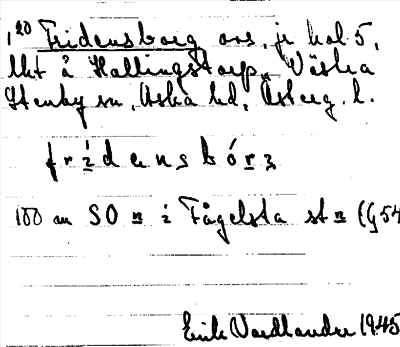 1,20 Fridensborg avs. je kal. 5,
lht å Hallingstorp, Västra
Stenby sn, Aska hd, Österg. l.
frìdensbórg
100 m SO n i Fågelsta stn (G54
Erik Wadlander 1945